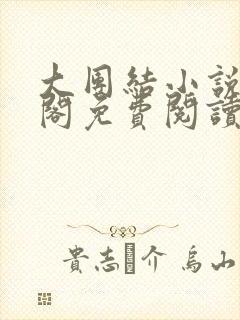 大團結小說
閣免費閱讀
貴志介 烏山